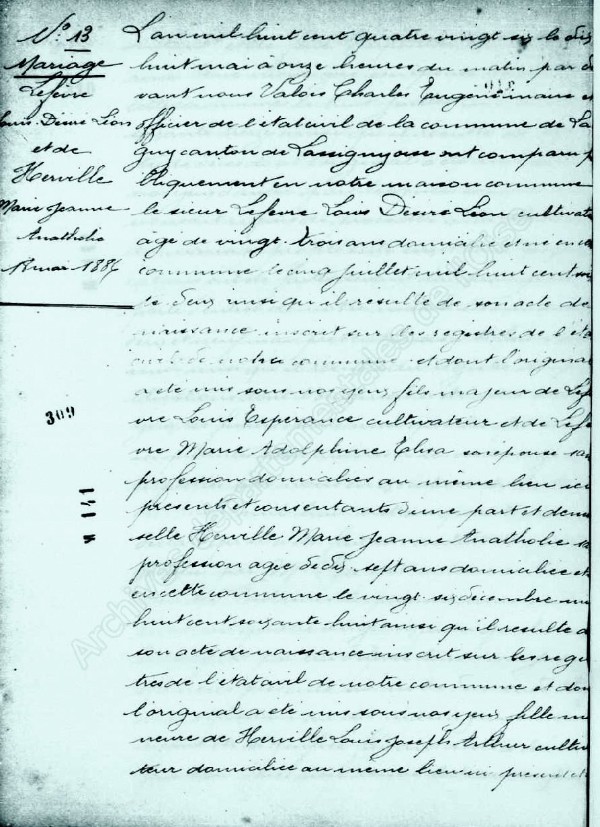 N° 13
Mariage
Lefevre
Louis Desire Léon
et de
Herville
Marie Jeanne
Anatholie
18 mai 1886
309
141
L'an mil huit cent quatre vingt six le dix
huit mai à onze heures du matin par de
vant nous Valois Charles Eugène maire et
officier de l'état civil de la commune de La
gny canton de Lassigny oise ont comparu p
bliquement en notre maison commune
le sieur Lefevre Louis Desire Léon cultivat
âgé de vingt-trois ans domicilié et né en ce
commune le cinq juillet mil huit cent soi
te deux insi qu'il resulte de son acte de
naissance inscrit sur les registres de l'éta
civil de notre commune et dont l'original
a été mis sous nos yeux, fils majeur de Lef
vre Louis Esperance cultivateur et de Lefe
vre Marie Adolphine Elisa son épouse san
profession domiciliés au même lieu ici
présents et consentants d'une part et demoi
selle Herville Marie Jeanne Anatholie sa
profession agée de dix-sept ans domiciliée et
en cette commune le vingt-six décembre mi
huit cent soixante huit ainsi qu'il resulte d
son acte de naissance inscrit sur les regis
tres de l'état civil de notre commune et don
l'original a été mis sous nos yeux, fille mi
neure de Herville Louis Joseph Arthur cultiva
teur domicilié au même lieu ici présent et
Archives départementales de l'Oise